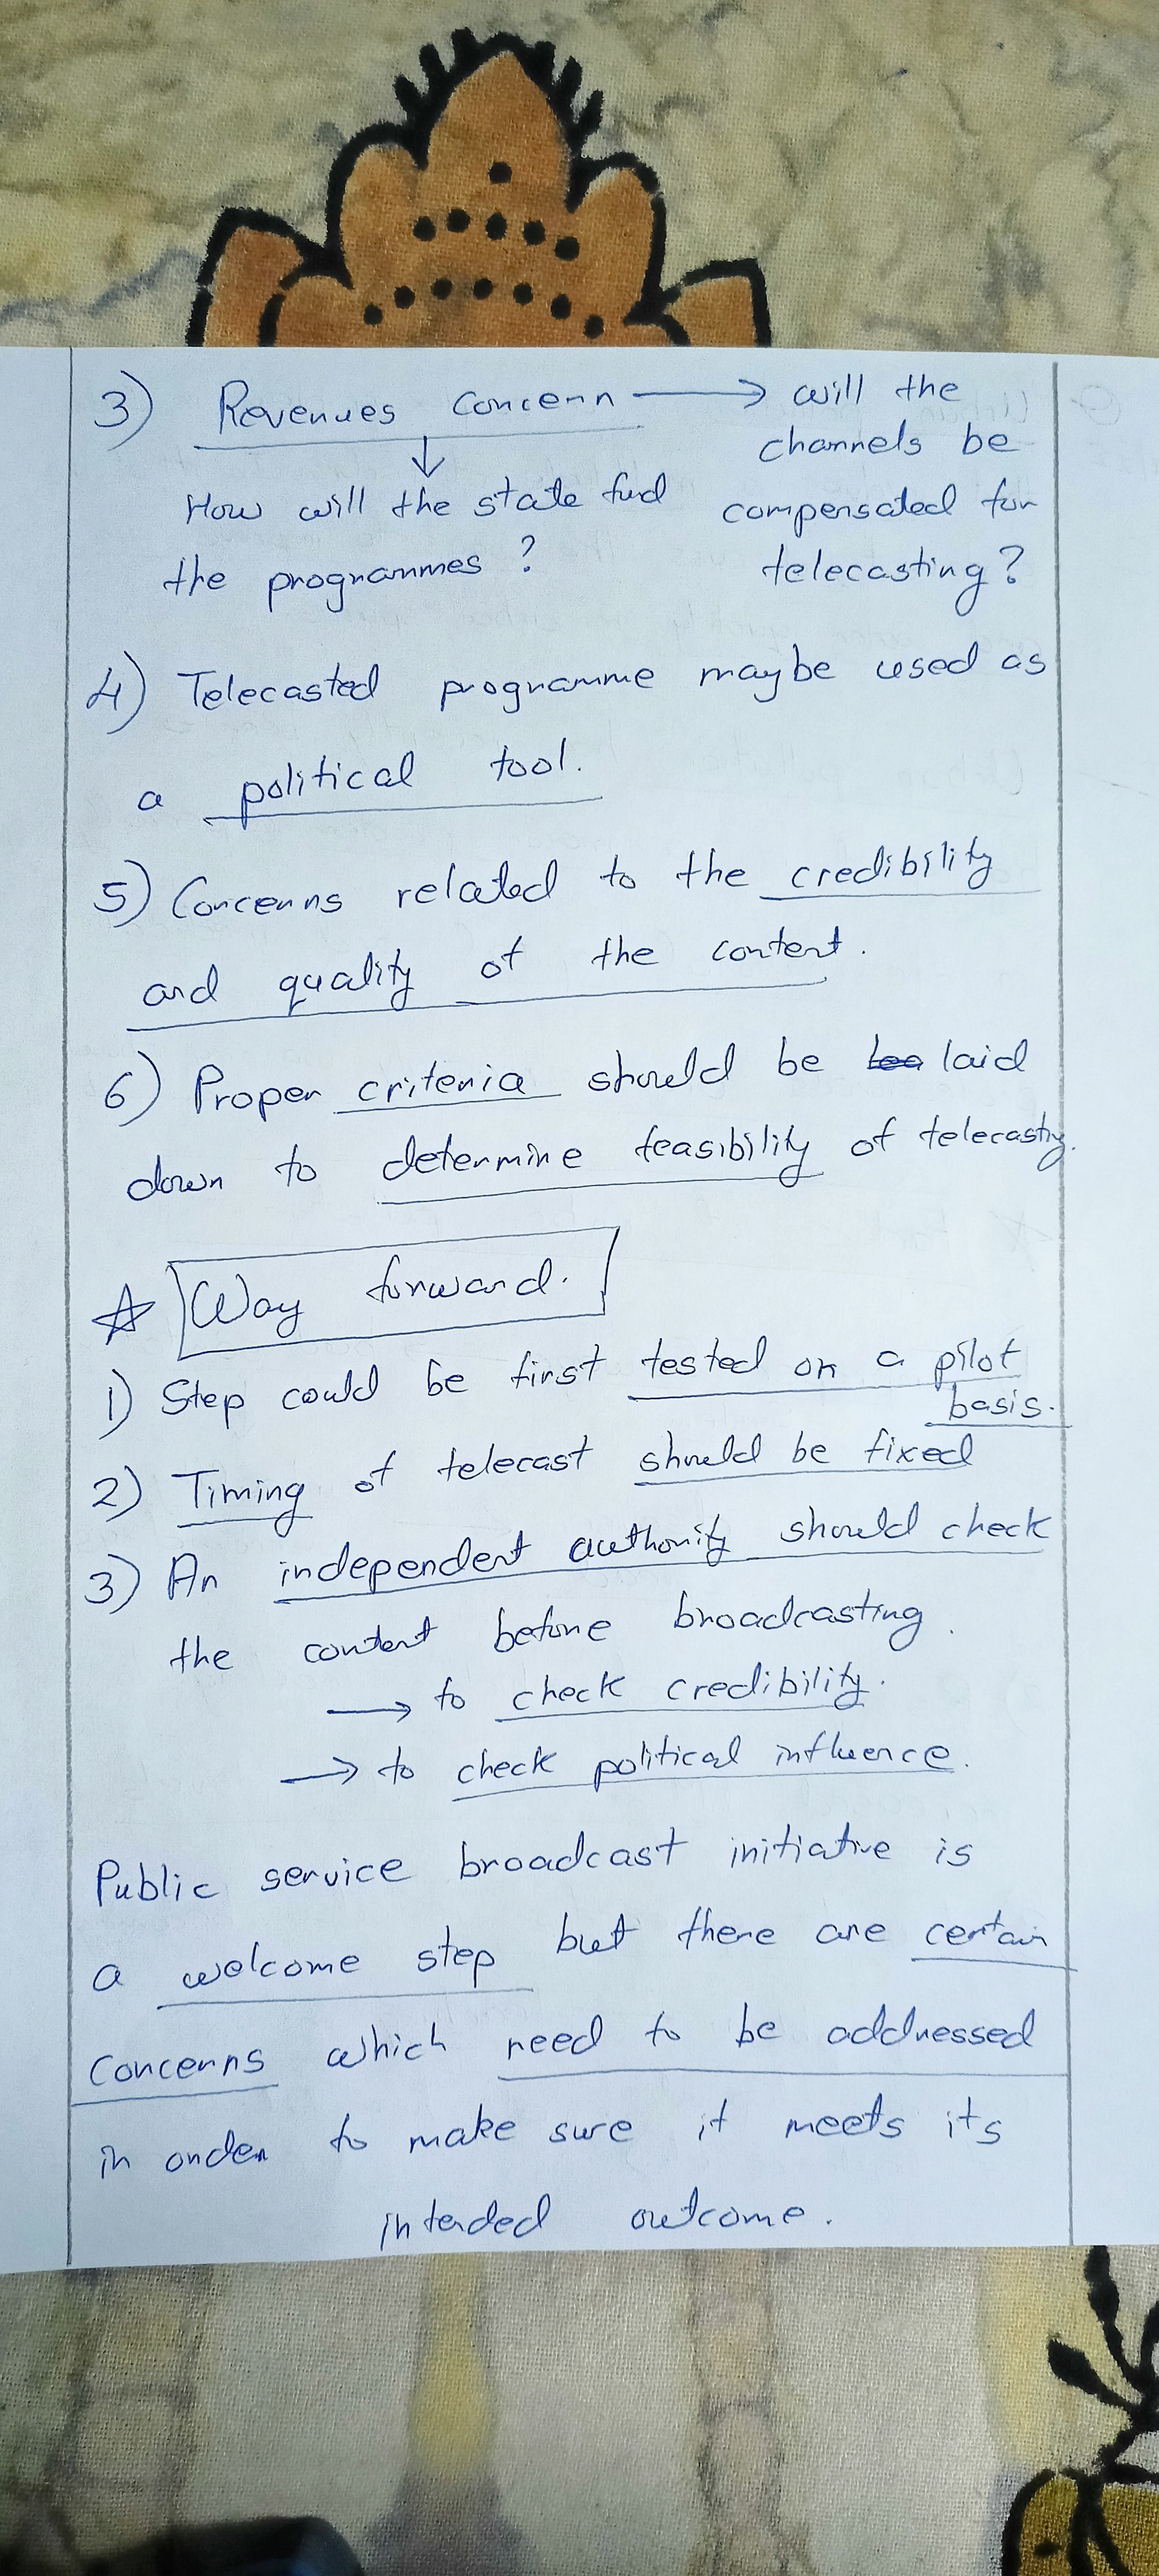 3) Revenues concern → will the
channels be
↓
How will the state fud
compensated for
the programmes ?
telecasting?
4) Telecasted programme maybe used as
a political tool.
5) Concerns related to the credibility
and quality of the content.
6) Proper criteria should be laid
down to determine feasibility of telecasting.
☆ Way forward.
1) Step could be first tested on a pilot
basis.
2) Timing of telecast should be fixed
3) An independent authority should check
the content before broadcasting.
→ to check credibility.
→ to check political influence.
Public service broadcast initiative is
a welcome step but there are certain
concerns which need to be addressed
in order to make sure it meets its
intended outcome.